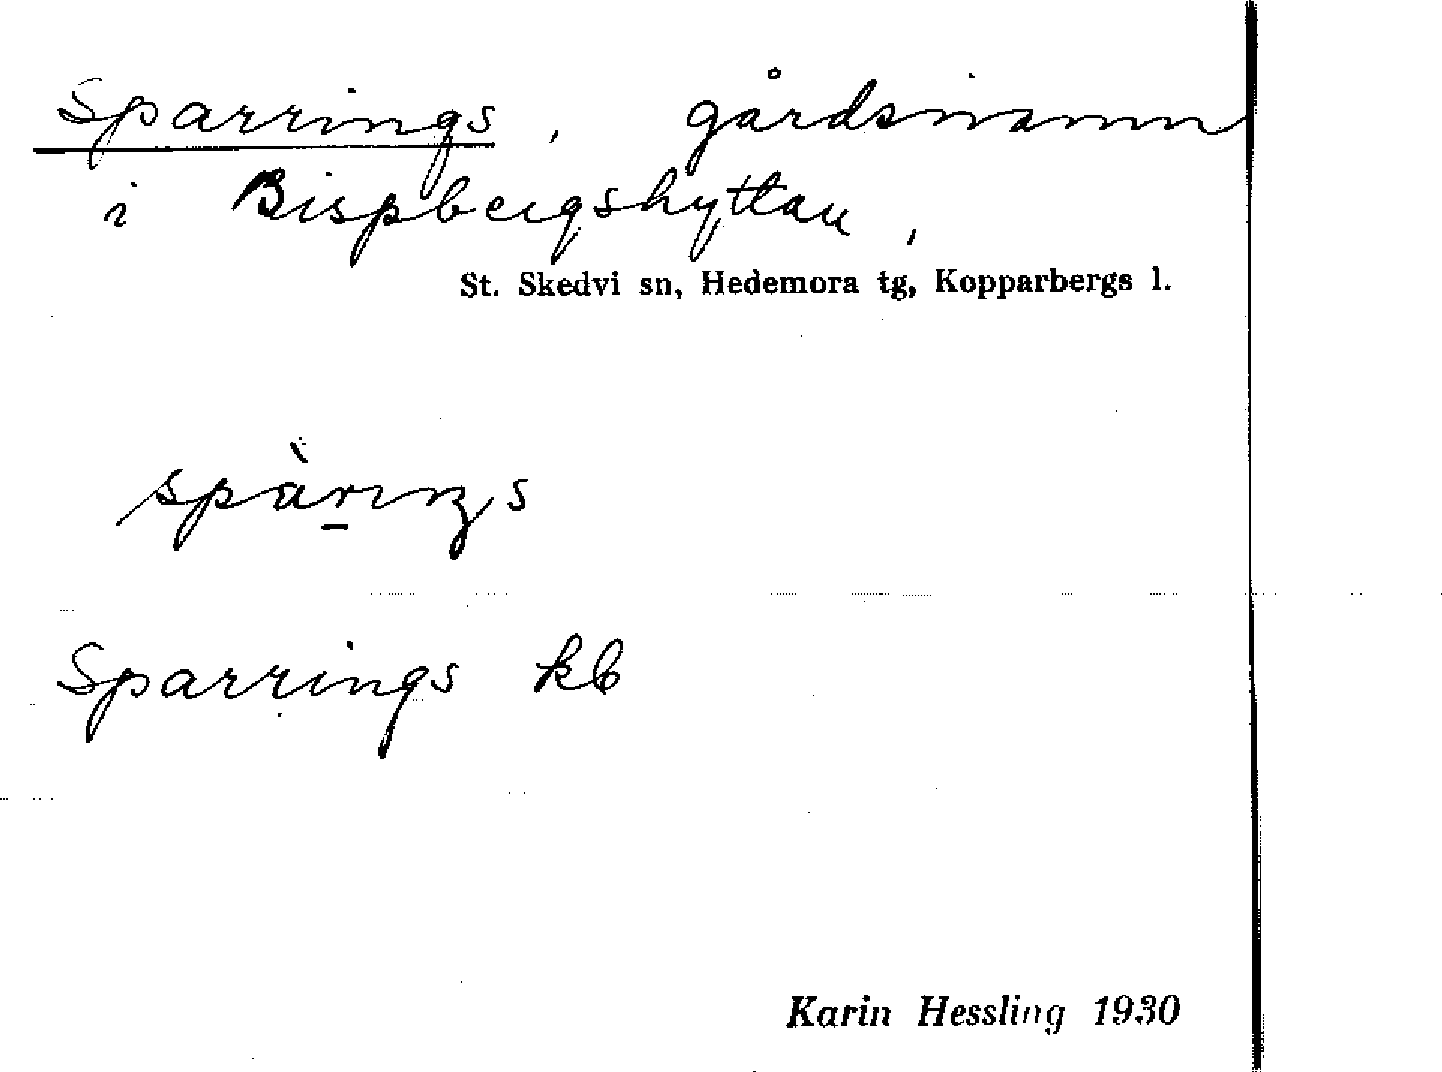 Sparrings, gårdsnamn
i Bispbergshyttan,
St. Skedvi sn, Hedemora tg, Kopparbergs l.
spàr̲ıŋs
Sparrings kb
Karin Hessling 1930